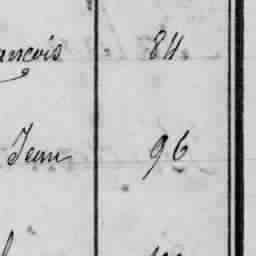 ançois 84
Jean 96